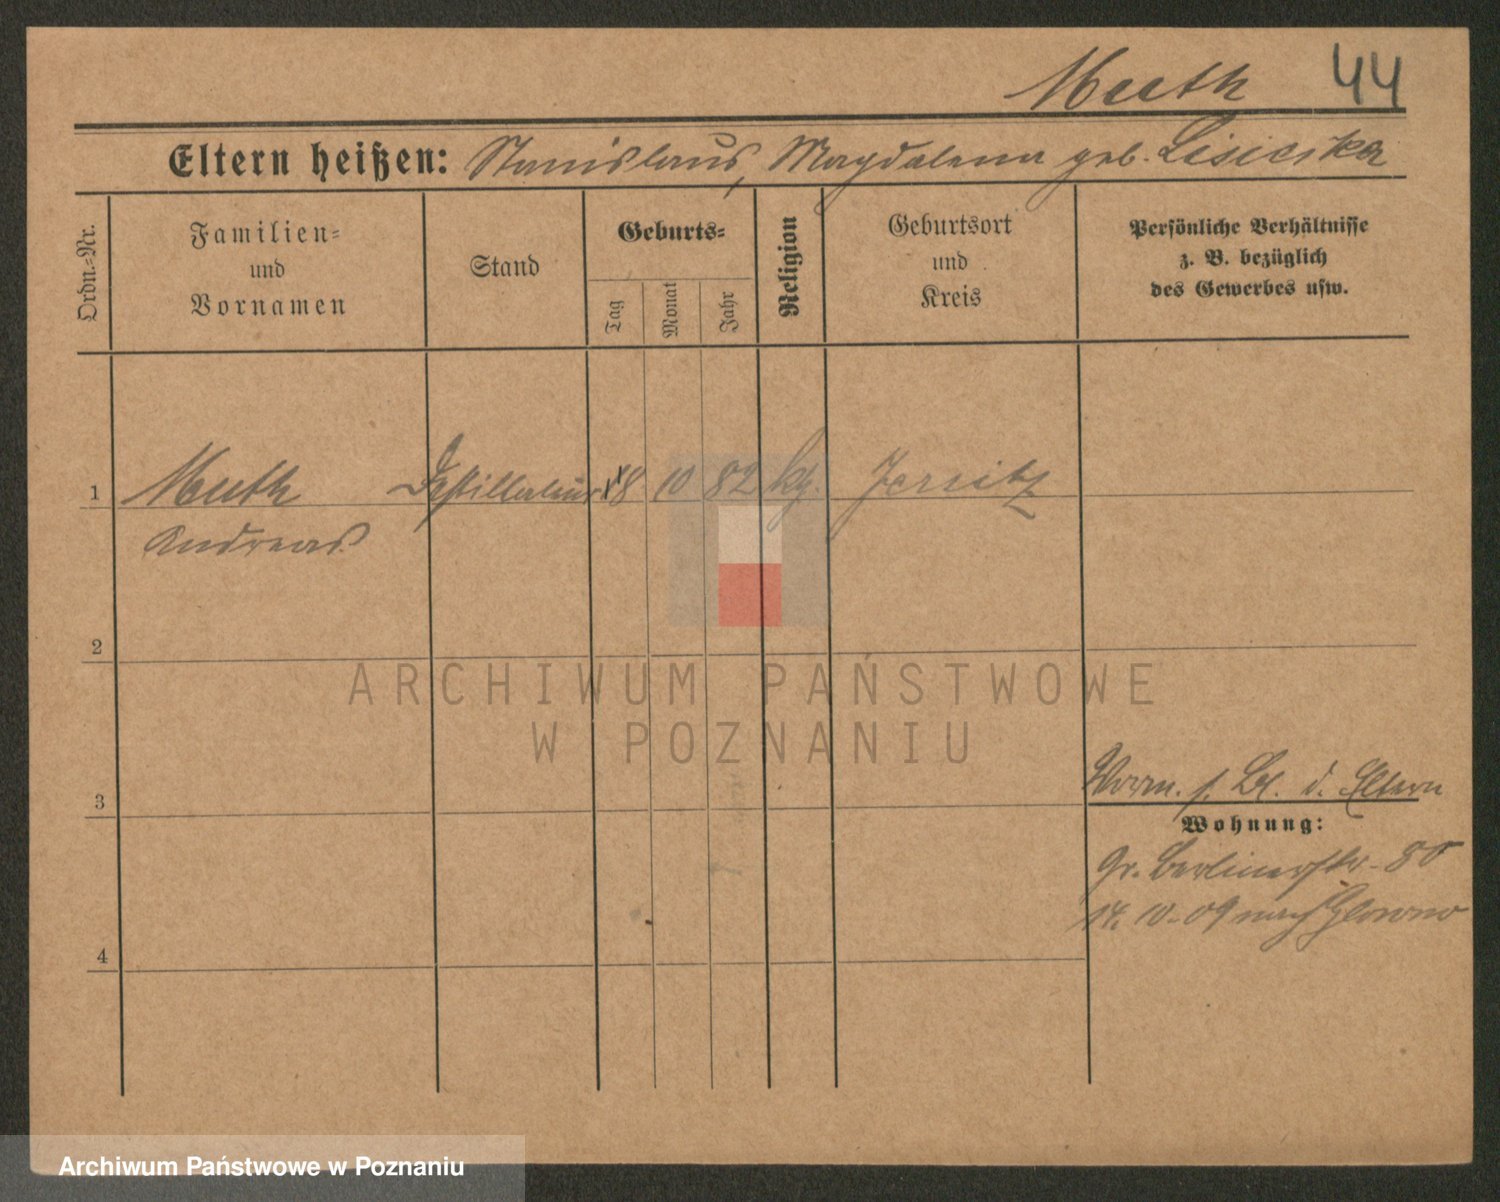 Muth 44
Eltern heißen: Stanislaus, Magdalena geb. Lisiecka
Ordn.-Nr.
Familien-
und
Vornamen
Stand
Geburts-
Tag
Monat
Jahr
Religion
Geburtsort
und
Kreis
Persönliche Verhältnisse
z. B. bezüglich
des Gewerbes usw.
1 Muth Destillateur 8 10 82 kg. Jersitz
Andreas
2
ARCHIWUM PAŃSTWOWE
W POZNANIU
3
Worm. s. Bl. d. Eltern
Wohnung:
Gr. Berlinerstr. 80
14. 10. 09 nach Glowno
4
Archiwum Państwowe w Poznaniu